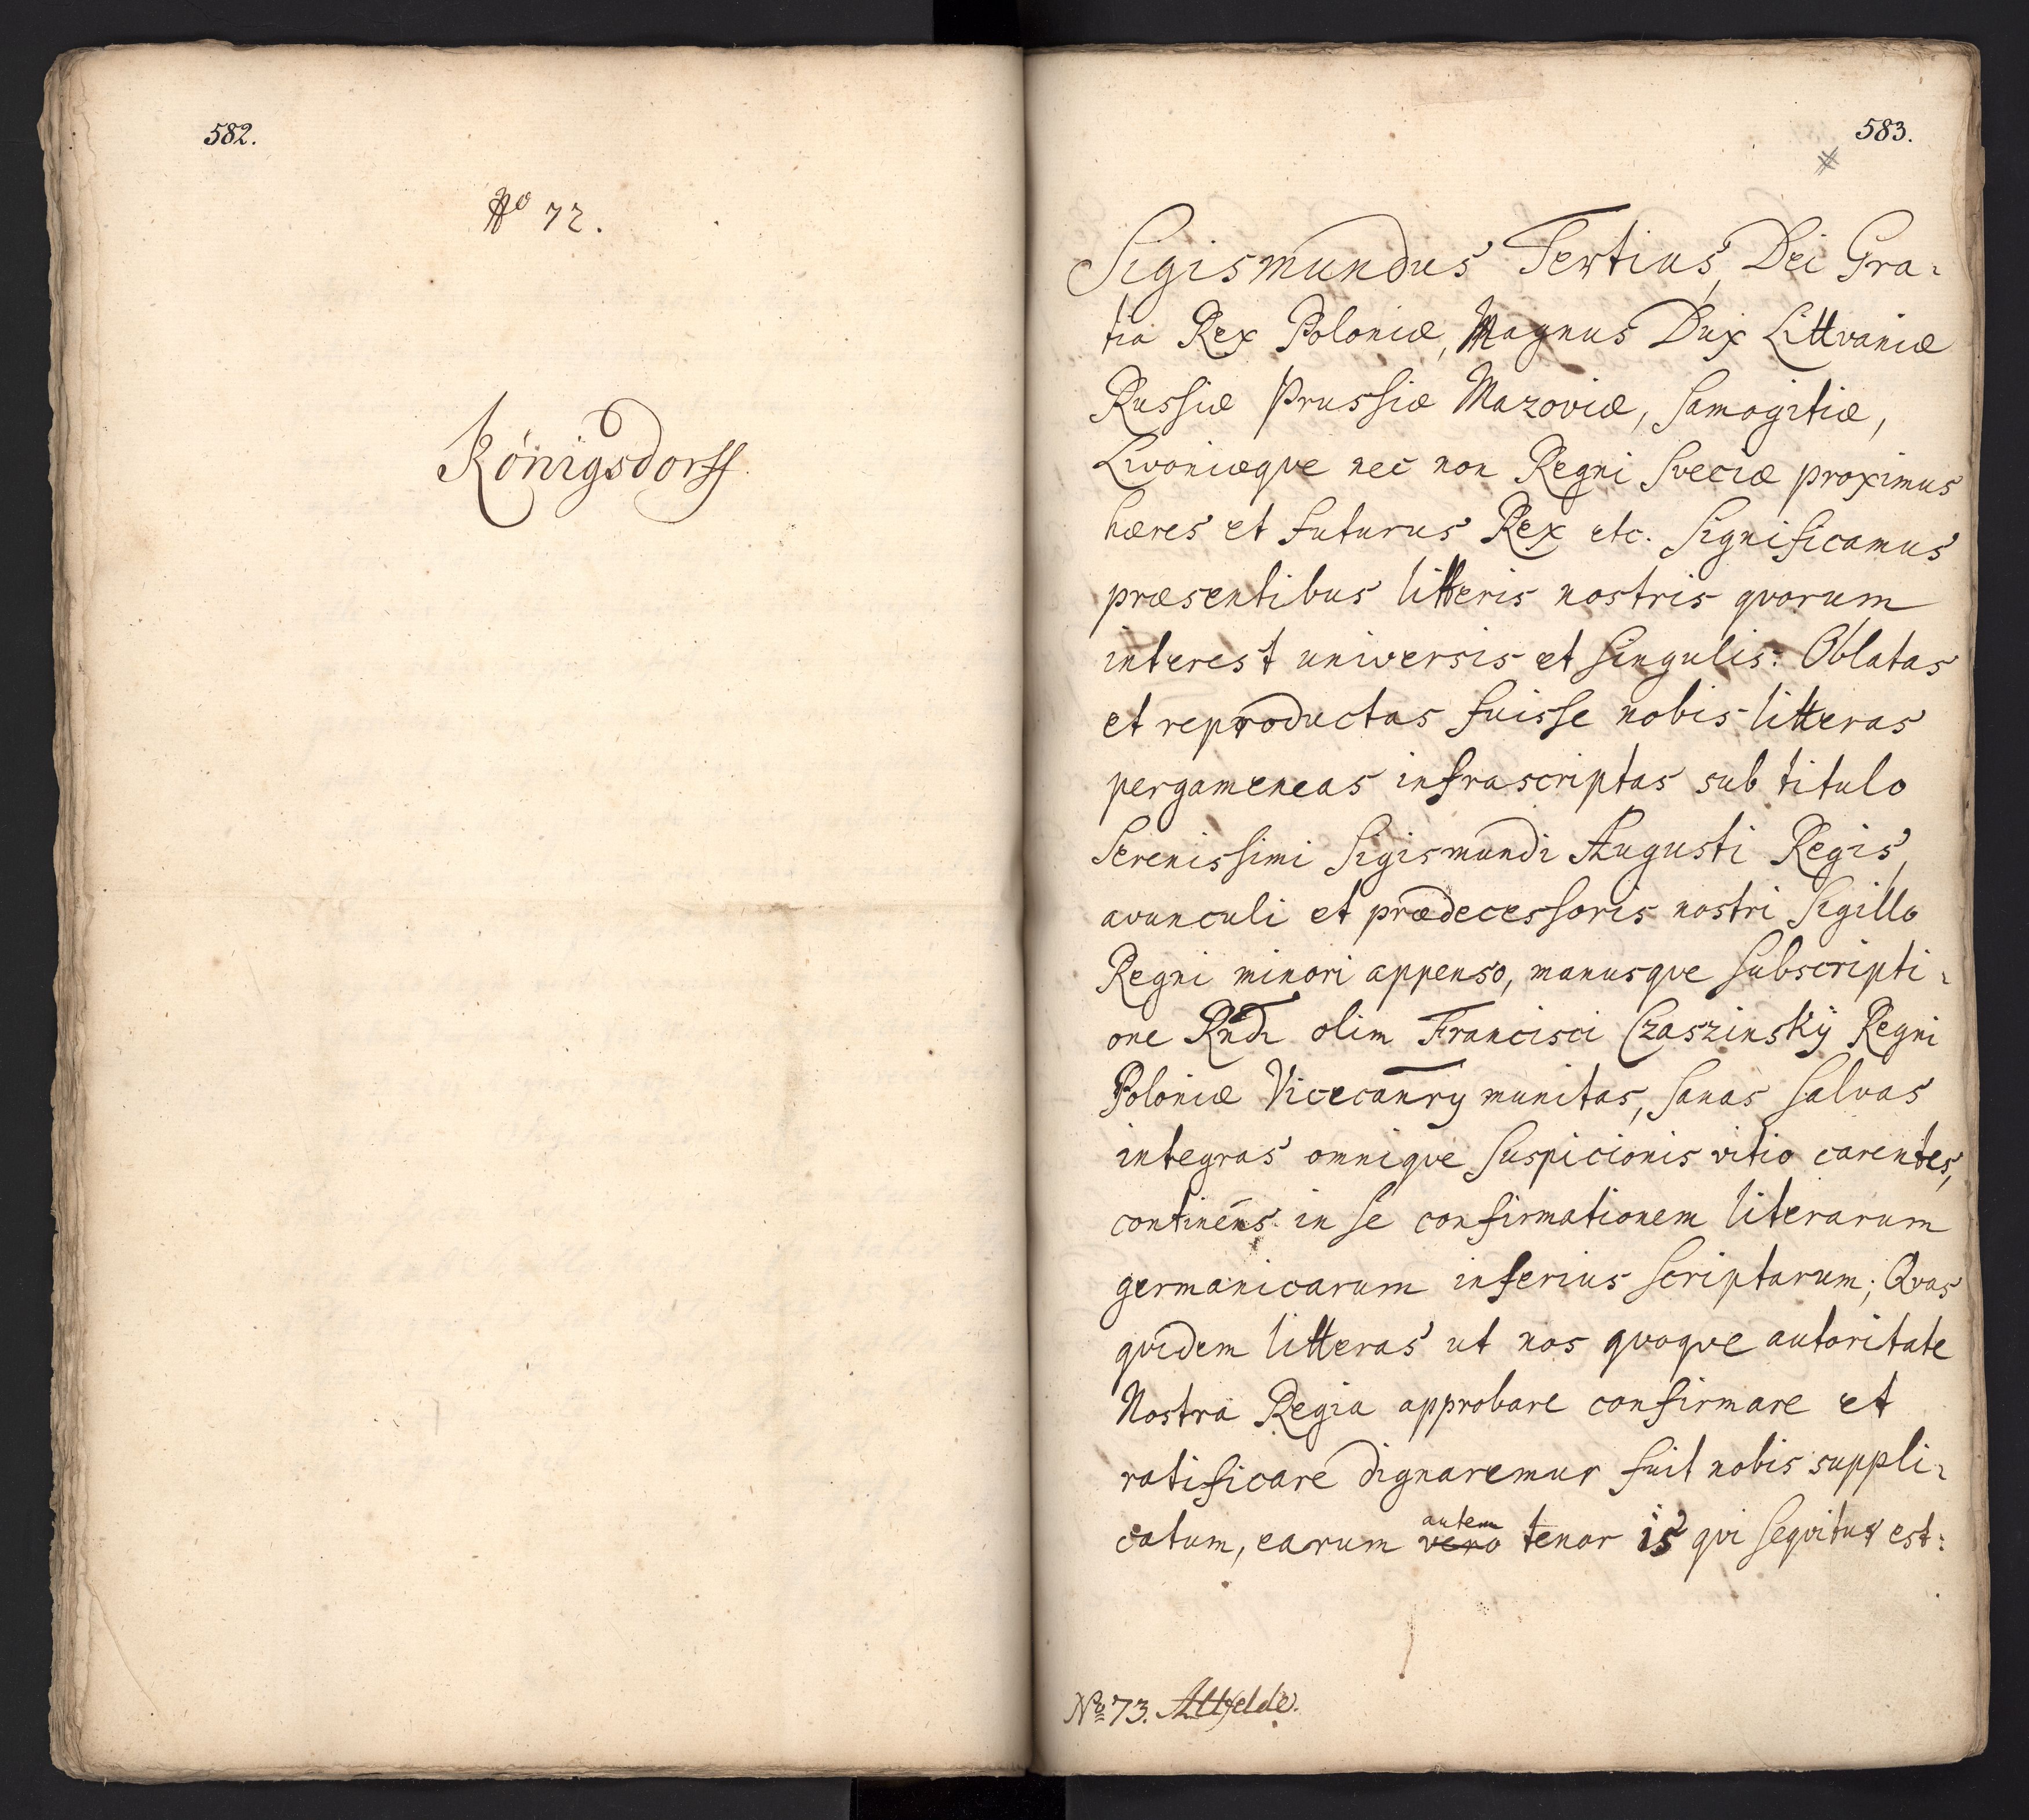 582.
No 72.
Königsdorff
583.
#
Sigismundus Tertius, Dei Gra=
tia Rex Poloniæ, Magnus Dux Littvaniæ
Russiæ Prussiæ Mazoviæ, Samogitiæ,
Livoniæqve nec non Regni Sveciæ proximus
hæres et futurus Rex etc. Significamus
præsentibus litteris nostris qvorum
interest universis et singulis: Oblatas
et reproductas fuisse nobis litteras
pergameneas infrascriptas sub titulo
Serenissimi Sigismundi Augusti Regis,
avunculi et prædecessoris nostri Sigillo
Regni minori appenso, manusqve subscripti=
one Rndi olim Francisci Czaszinskÿ Regni
Poloniæ Vicecanry munitas, sanas salvas
integras omniqve suspicionis vitio carentes,
continens in se confirmationem literarum
germanicarum inferius scriptarum; Qvas
qvidem litteras ut nos qvoqve autoritate
Nostra Regia approbare confirmare et
ratificare dignaremur fuit nobis suppli=
catum, earum vero autem tenor is qvi seqvitur est:
No 73. Altfelde.